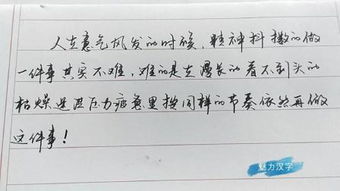 人在意气风发的时候，精神抖擞的做
一件事其实不难，难的是在漫长的看不到头的
枯燥迷茫压力疲惫里按同样的节奏依然再做
这件事！
魅力汉字